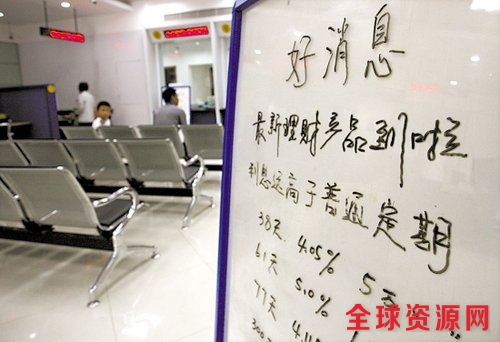 好消息
最新理财产品到啦
利息远高于普通定期
38天 4.05% 5万
61天 5.10%
77天
全球资源网